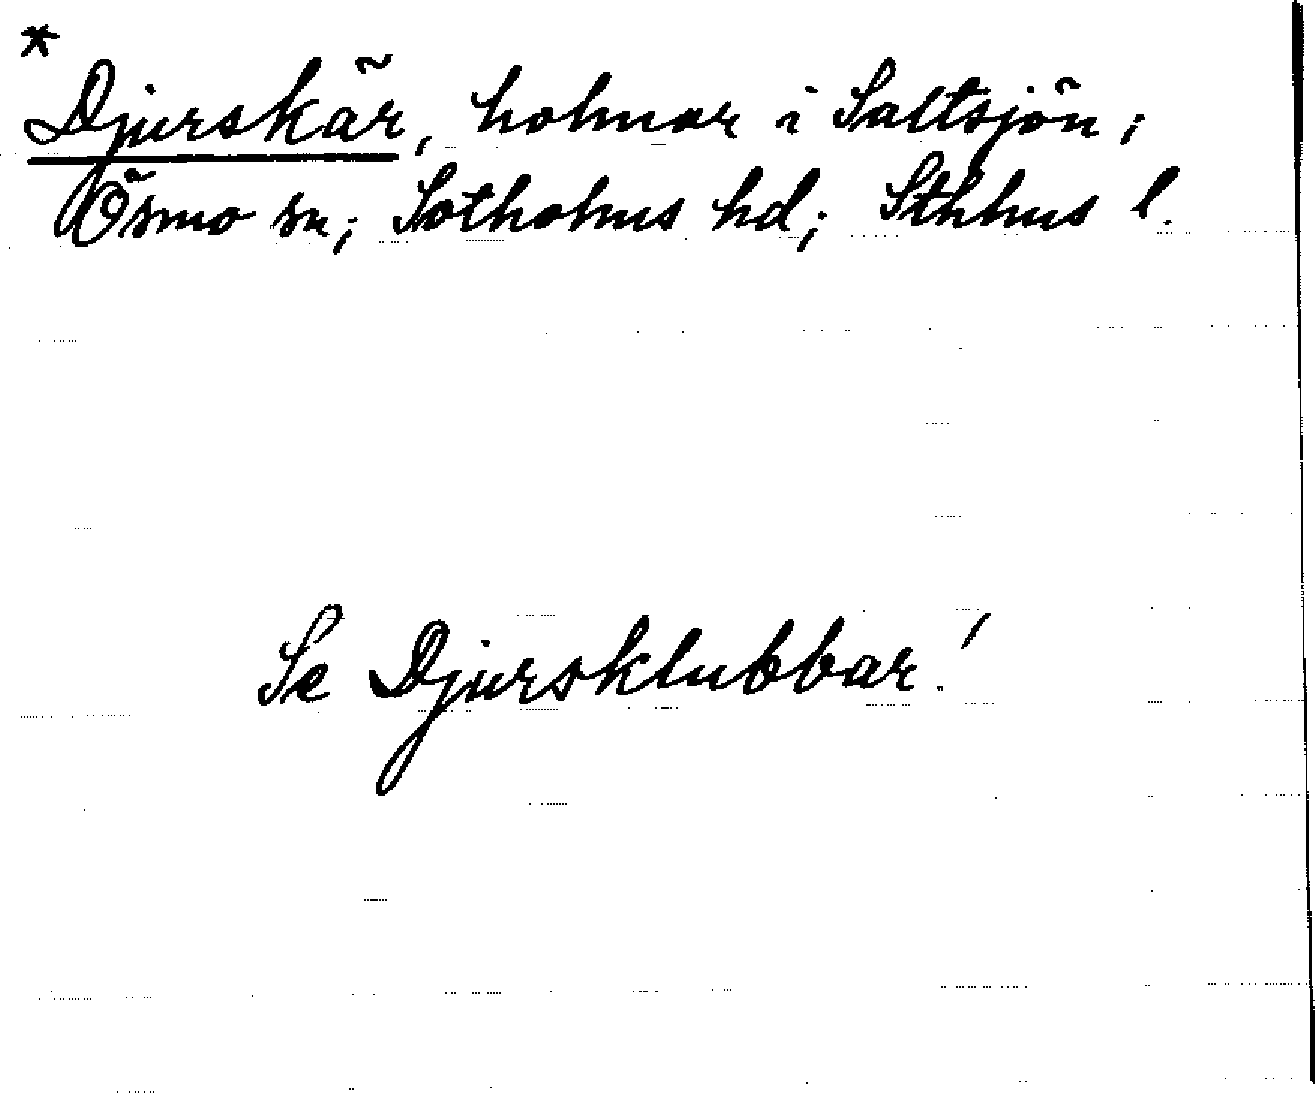 *
Djurskär, holmar i Saltsjön;
Ösmo sn; Sotholms hd; Sthlms l.
Se Djursklubbar!